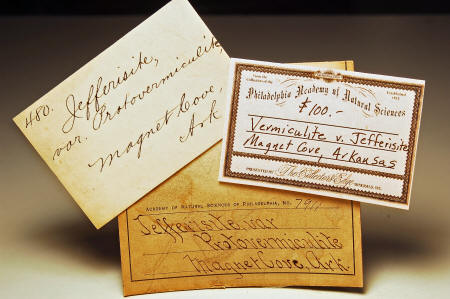 480. Jefferisite,
var. Protovermiculite
Magnet Cove,
Ark
From the Collection of the
Established 1812
Philadelphia Academy of Natural Sciences
$100.-
Vermiculite v. Jefferisite
Magnet Cove, Arkansas
PRESENTED BY The Collector's Edge MINERALS, INC.
ACADEMY OF NATURAL SCIENCES OF PHILADELPHIA, NO.
Jefferisite var
Protovermiculite
Magnet Cove, Ark.